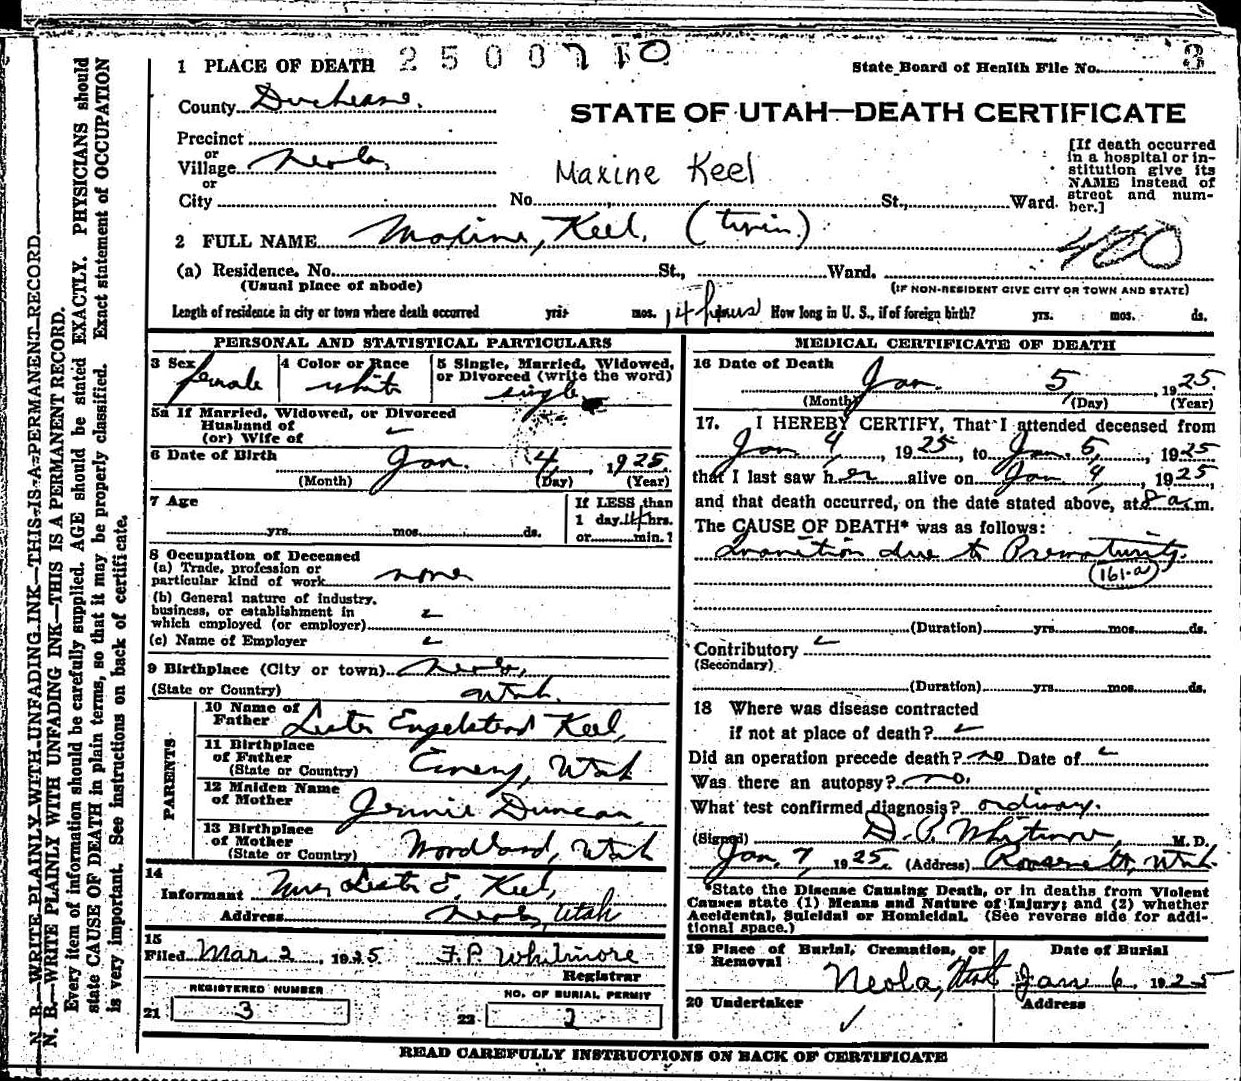 1 PLACE OF DEATH 2500710
State Board of Health File No. 3
County Duchesne.
STATE OF UTAH—DEATH CERTIFICATE
Precinct
or
Village Neola
or
City
Maxine Keel
No. St., Ward.
[If death occurred
in a hospital or in-
stitution give its
NAME instead of
street and num-
ber.]
2 FULL NAME Maxine, Keel, (twin)
400
(a) Residence. No. St., Ward.
(Usual place of abode)
(IF NON-RESIDENT GIVE CITY OR TOWN AND STATE)
Length of residence in city or town where death occurred yrs. mos. 14 hours How long in U. S., if of foreign birth? yrs. mos. ds.
PERSONAL AND STATISTICAL PARTICULARS
3 Sex female
4 Color or Race white
5 Single, Married, Widowed,
or Divorced (write the word)
single
5a If Married, Widowed, or Divorced
Husband of
(or) Wife of
6 Date of Birth Jan. 4, 1925
(Month) (Day) (Year)
7 Age
yrs. mos. ds.
If LESS than
1 day 14 hrs.
or min.?
8 Occupation of Deceased
(a) Trade, profession or
particular kind of work none
(b) General nature of industry,
business, or establishment in
which employed (or employer)
(c) Name of Employer
9 Birthplace (City or town) Neola,
(State or Country) Utah.
PARENTS
10 Name of
Father Lester Engelstead Keel,
11 Birthplace
of Father
(State or Country) Emery, Utah
12 Maiden Name
of Mother Jennie Duncan,
13 Birthplace
of Mother
(State or Country) Woodland, Utah
14
Informant Mrs Lester E, Keel,
Address Neola, Utah
15
Filed Mar 2, 1925 F.P. Whitmore
Registrar
REGISTERED NUMBER
21 3
NO. OF BURIAL PERMIT
22 2
MEDICAL CERTIFICATE OF DEATH
16 Date of Death
Jan. 5, 1925
(Month) (Day) (Year)
17. I HEREBY CERTIFY, That I attended deceased from
Jan 4, 1925, to Jan. 5, 1925
that I last saw her alive on Jan 4, 1925,
and that death occurred, on the date stated above, at 8 a.m.
The CAUSE OF DEATH* was as follows:
Inanition due to Prematurity.
161-a
(Duration) yrs. mos. ds.
Contributory
(Secondary)
(Duration) yrs. mos. ds.
18 Where was disease contracted
if not at place of death?
Did an operation precede death? no Date of
Was there an autopsy? no.
What test confirmed diagnosis? ordinary.
(Signed) D. P. Whitmore, M. D.
Jan, 7, 1925. (Address) Roosevelt, Utah.
*State the Disease Causing Death, or in deaths from Violent
Causes state (1) Means and Nature of Injury; and (2) whether
Accidental, Suicidal or Homicidal. (See reverse side for addi-
tional space.)
19 Place of Burial, Cremation, or
Removal
Neola, Utah
Date of Burial
Jan 6 1925
20 Undertaker
Address
READ CAREFULLY INSTRUCTIONS ON BACK OF CERTIFICATE
N. B.—WRITE PLAINLY WITH UNFADING INK—THIS IS A PERMANENT RECORD
N. B.—WRITE PLAINLY WITH UNFADING INK—THIS IS A PERMANENT RECORD.
Every item of information should be carefully supplied. AGE should be stated EXACTLY. PHYSICIANS should
state CAUSE OF DEATH in plain terms, so that it may be properly classified. Exact statement of OCCUPATION
is very important. See instructions on back of certificate.